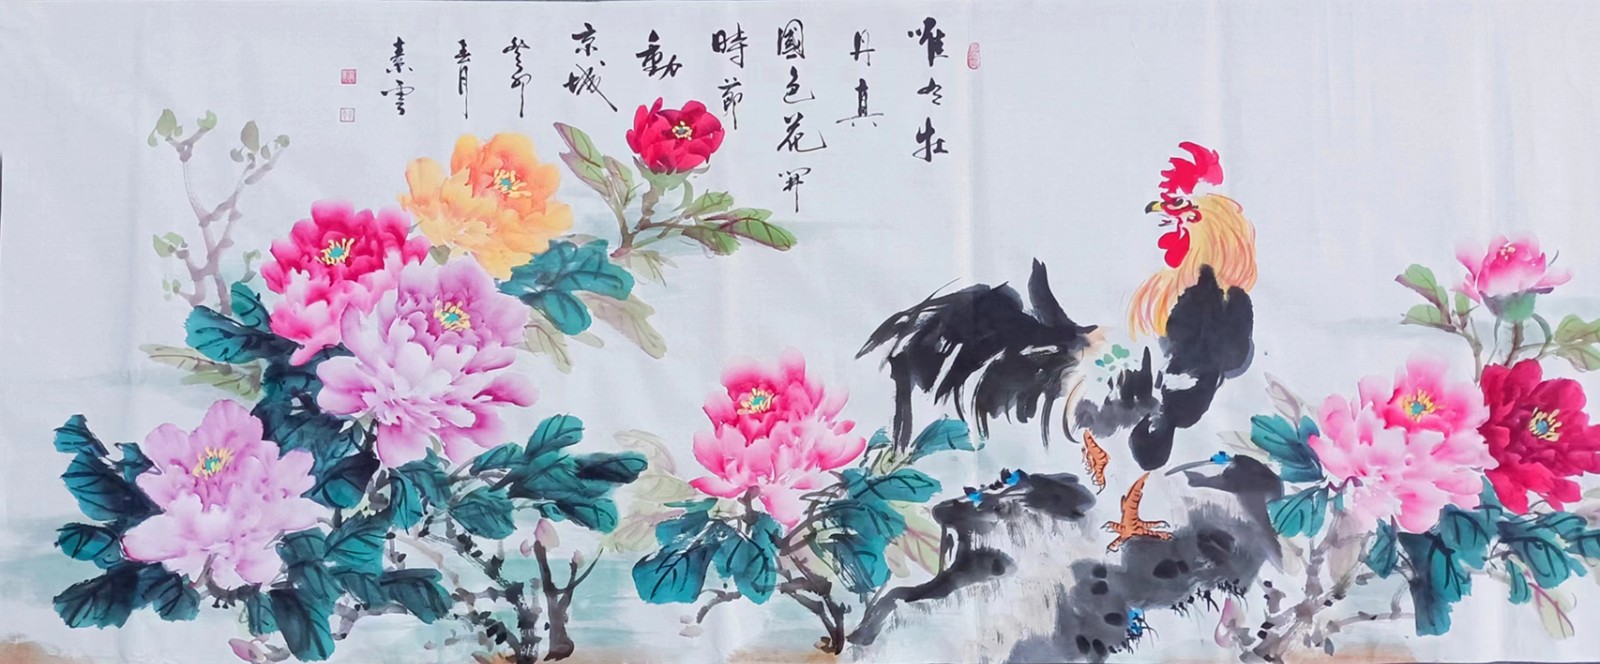 唯有牡
丹真
國色花開
時節
動
京城
癸卯
春月
素雲